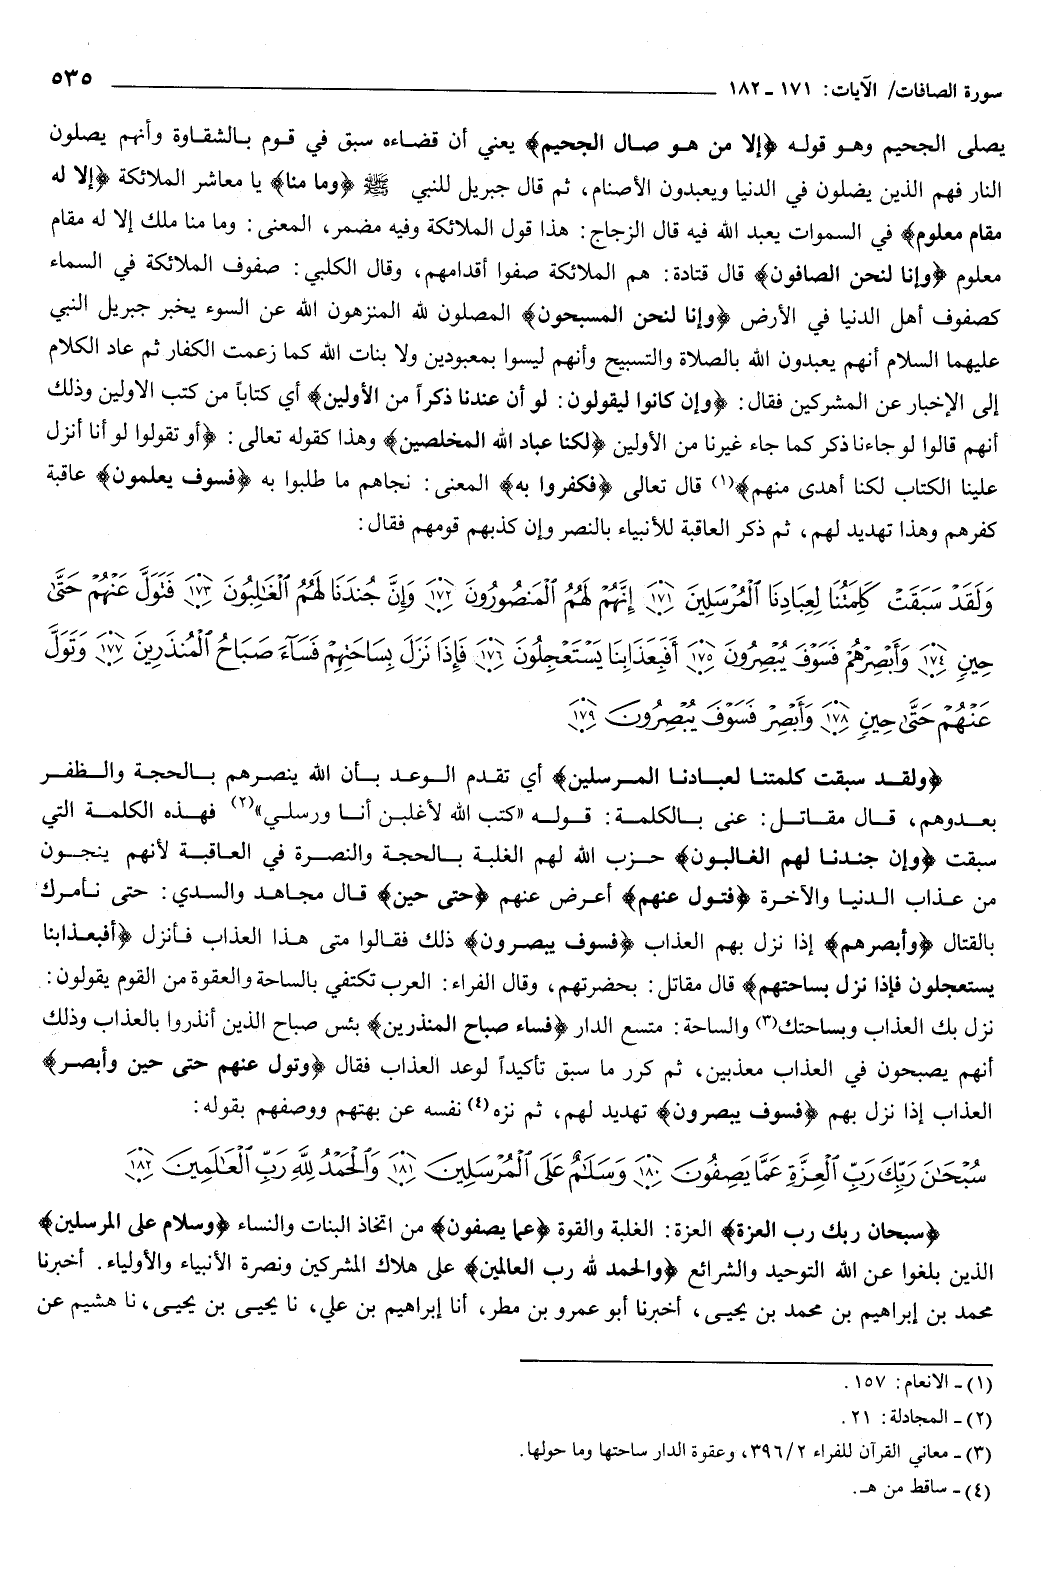 سورة الصافات/ الآيات: ١٧١ - ١٨٢ ٥٣٥
يصلى الجحيم وهو قوله ﴿إلا من هو صال الجحيم﴾ يعني أن قضاءه سبق في قوم بالشقاوة وأنهم يصلون
النار فهم الذين يضلون في الدنيا ويعبدون الأصنام، ثم قال جبريل للنبي ﷺ ﴿وما منا﴾ يا معاشر الملائكة ﴿إلا له
مقام معلوم﴾ في السموات يعبد الله فيه قال الزجاج: هذا قول الملائكة وفيه مضمر، المعنى: وما منا ملك إلا له مقام
معلوم ﴿وإنا لنحن الصافون﴾ قال قتادة: هم الملائكة صفوا أقدامهم، وقال الكلبي: صفوف الملائكة في السماء
كصفوف أهل الدنيا في الأرض ﴿وإنا لنحن المسبحون﴾ المصلون لله المنزهون الله عن السوء يخبر جبريل النبي
عليهما السلام أنهم يعبدون الله بالصلاة والتسبيح وأنهم ليسوا بمعبودين ولا بنات الله كما زعمت الكفار ثم عاد الكلام
إلى الإخبار عن المشركين فقال: ﴿وإن كانوا ليقولون: لو أن عندنا ذكراً من الأولين﴾ أي كتاباً من كتب الاولين وذلك
أنهم قالوا لو جاءنا ذكر كما جاء غيرنا من الأولين ﴿لكنا عباد الله المخلصين﴾ وهذا كقوله تعالى: ﴿أو تقولوا لو أنا أنزل
علينا الكتاب لكنا أهدى منهم﴾(١) قال تعالى ﴿فكفروا به﴾ المعنى: نجاهم ما طلبوا به ﴿فسوف يعلمون﴾ عاقبة
كفرهم وهذا تهديد لهم، ثم ذكر العاقبة للأنبياء بالنصر وإن كذبهم قومهم فقال:
وَلَقَدْ سَبَقَتْ كَلِمَتُنَا لِعِبَادِنَا ٱلْمُرْسَلِينَ ١٧١ إِنَّهُمْ لَهُمُ ٱلْمَنصُورُونَ ١٧٢ وَإِنَّ جُندَنَا لَهُمُ ٱلْغَٰلِبُونَ ١٧٣ فَتَوَلَّ عَنْهُمْ حَتَّىٰ
حِينٍ ١٧٤ وَأَبْصِرْهُمْ فَسَوْفَ يُبْصِرُونَ ١٧٥ أَفَبِعَذَابِنَا يَسْتَعْجِلُونَ ١٧٦ فَإِذَا نَزَلَ بِسَاحَتِهِمْ فَسَآءَ صَبَاحُ ٱلْمُنذَرِينَ ١٧٧ وَتَوَلَّ
عَنْهُمْ حَتَّىٰ حِينٍ ١٧٨ وَأَبْصِرْ فَسَوْفَ يُبْصِرُونَ ١٧٩
﴿ولقد سبقت كلمتنا لعبادنا المرسلين﴾ أي تقدم الوعد بأن الله ينصرهم بالحجة والظفر
بعدوهم، قال مقاتل: عنى بالكلمة: قوله «كتب الله لأغلبن أنا ورسلي»(٢) فهذه الكلمة التي
سبقت ﴿وإن جندنا لهم الغالبون﴾ حزب الله لهم الغلبة بالحجة والنصرة في العاقبة لأنهم ينجون
من عذاب الدنيا والآخرة ﴿فتول عنهم﴾ أعرض عنهم ﴿حتى حين﴾ قال مجاهد والسدي: حتى نأمرك
بالقتال ﴿وأبصرهم﴾ إذا نزل بهم العذاب ﴿فسوف يبصرون﴾ ذلك فقالوا متى هذا العذاب فأنزل ﴿أفبعذابنا
يستعجلون فإذا نزل بساحتهم﴾ قال مقاتل: بحضرتهم، وقال الفراء: العرب تكتفي بالساحة والعقوة من القوم يقولون:
نزل بك العذاب وبساحتك(٣) والساحة: متسع الدار ﴿فساء صباح المنذرين﴾ بئس صباح الذين أنذروا بالعذاب وذلك
أنهم يصبحون في العذاب معذبين، ثم كرر ما سبق تأكيداً لوعد العذاب فقال ﴿وتول عنهم حتى حين وأبصر﴾
العذاب إذا نزل بهم ﴿فسوف يبصرون﴾ تهديد لهم، ثم نزه(٤) نفسه عن بهتهم ووصفهم بقوله:
سُبْحَٰنَ رَبِّكَ رَبِّ ٱلْعِزَّةِ عَمَّا يَصِفُونَ ١٨٠ وَسَلَٰمٌ عَلَى ٱلْمُرْسَلِينَ ١٨١ وَٱلْحَمْدُ لِلَّهِ رَبِّ ٱلْعَٰلَمِينَ ١٨٢
﴿سبحان ربك رب العزة﴾ العزة: الغلبة والقوة ﴿عما يصفون﴾ من اتخاذ البنات والنساء ﴿وسلام على المرسلين﴾
الذين بلغوا عن الله التوحيد والشرائع ﴿والحمد لله رب العالمين﴾ على هلاك المشركين ونصرة الأنبياء والأولياء. أخبرنا
محمد بن إبراهيم بن محمد بن يحيى، أخبرنا أبو عمرو بن مطر، أنا إبراهيم بن علي، نا يحيى بن يحيى، نا هشيم عن
(١) - الانعام: ١٥٧.
(٢) - المجادلة: ٢١.
(٣) - معاني القرآن للفراء ٣٩٦/٢، وعقوة الدار ساحتها وما حولها.
(٤) - ساقط من هـ.